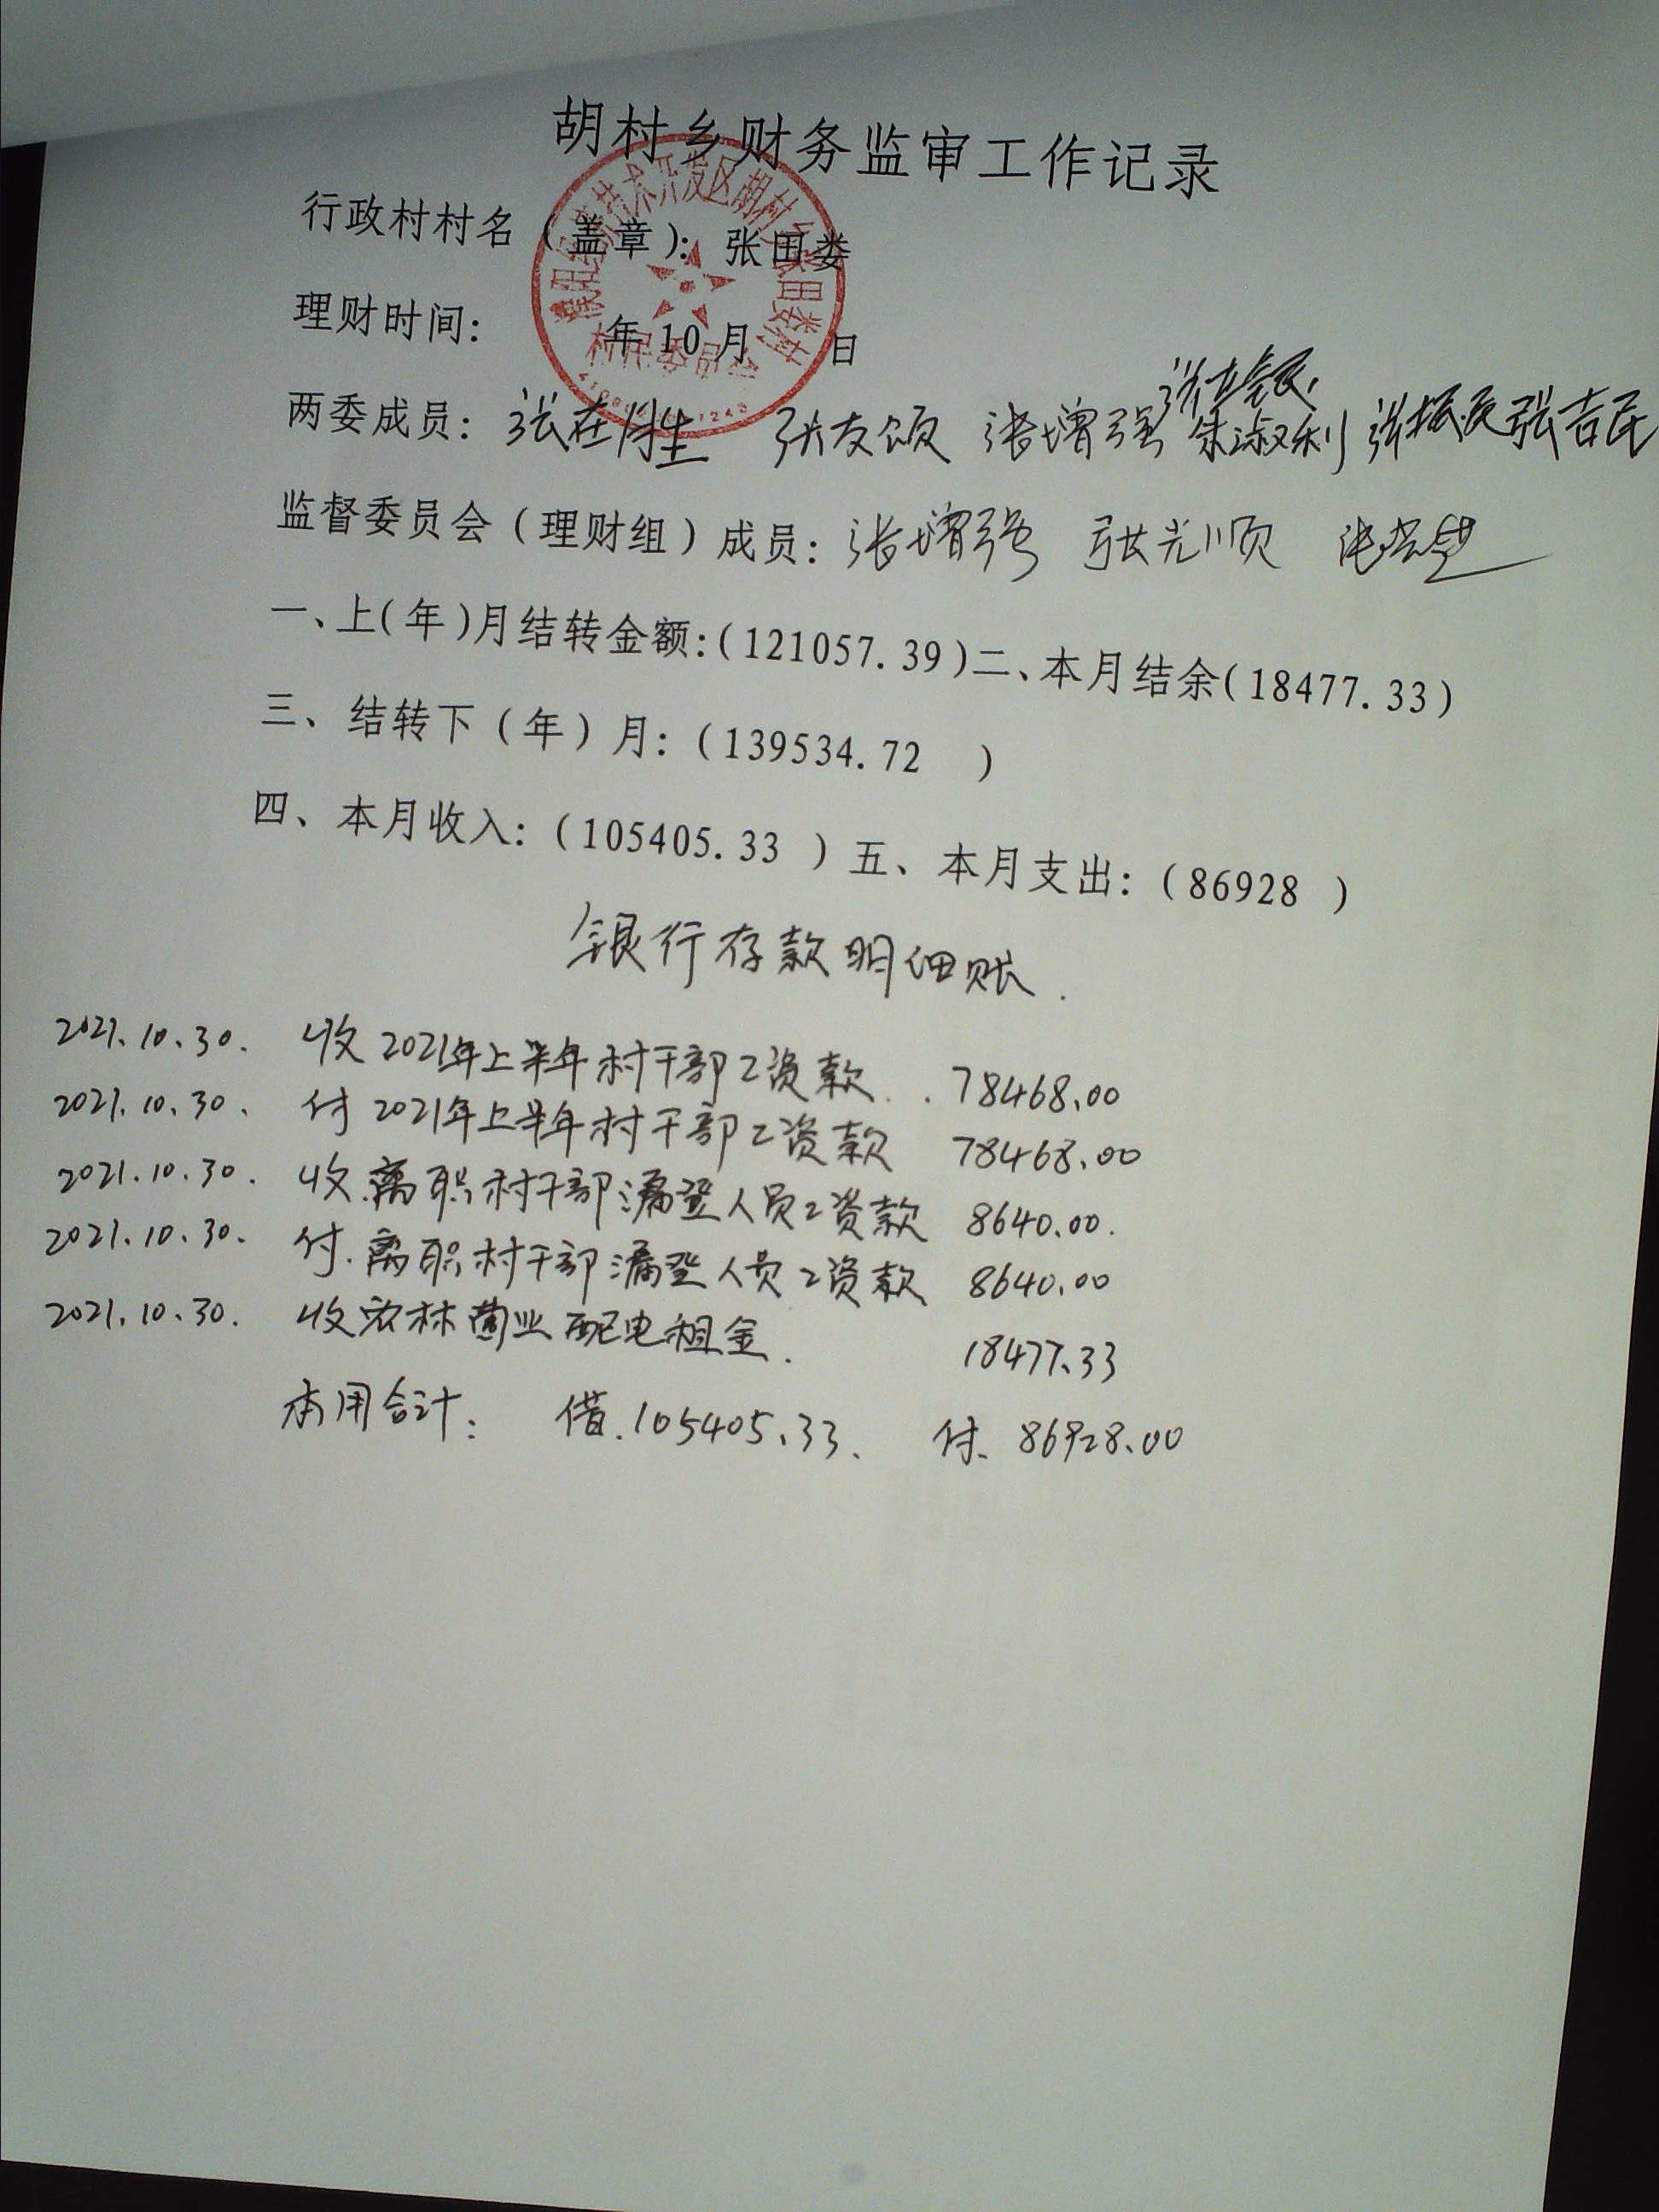 胡村乡财务监审工作记录
行政村村名（盖章）：张田娄
理财时间： 年10月 日
两委成员：张在生 张友颂 张增强 朱淑利 张振民 张吉民
监督委员会（理财组）成员：张增强 张光顺
一、上(年)月结转金额：(121057.39)二、本月结余(18477.33)
三、结转下（年）月：(139534.72 )
四、本月收入：(105405.33 )五、本月支出：(86928 )
银行存款明细账.
2021.10.30. 收2021年上半年村干部工资款.. 78468.00
2021.10.30. 付2021年上半年村干部工资款 78468.00
2021.10.30. 收.离职村干部漏登人员工资款 8640.00.
2021.10.30. 付.离职村干部漏登人员工资款 8640.00
2021.10.30. 收农林菌业配电租金. 18477.33
本月合计： 借.105405.33. 付. 86928.00